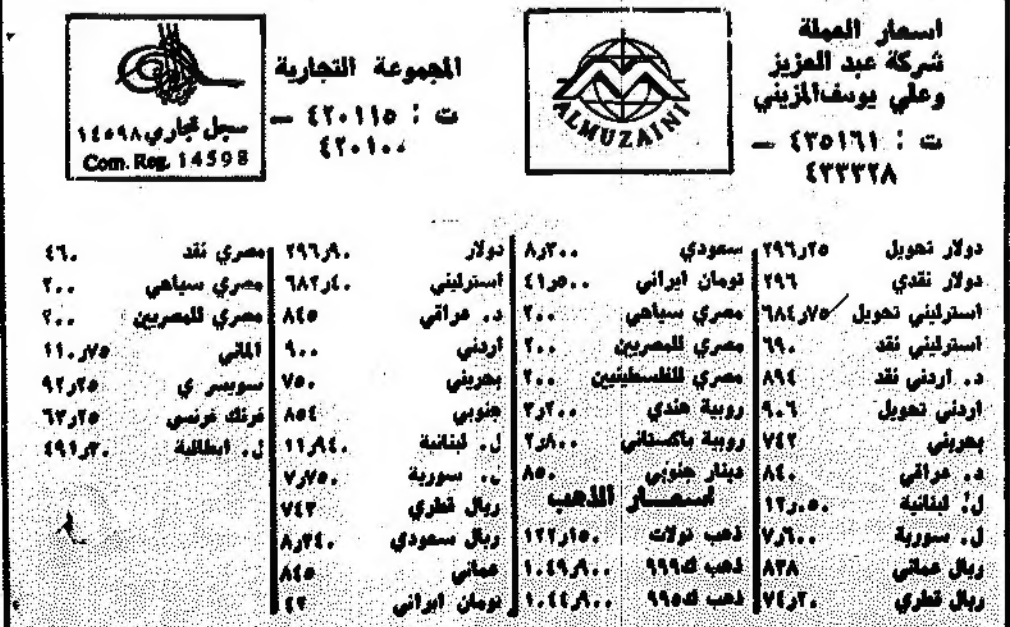 اسعار العملة
شركة عبد العزيز
وعلي يوسف المزيني
ت : ٤٣٥١٦١ –
٤٣٣٣٢٨
ALMUZAINI
المجموعة التجارية
ت : ٤٢٠١١٥ –
سجل تجاري ١٤٥٩٨
Com. Reg. 14598
دولار تحويل ٢٩٦٫٢٥
دولار نقدي ٢٩٦
استرليني تحويل ٦٨٤٫٧٥
استرليني نقد ٦٩٠
د. اردني نقد ٨٩٤
اردني تحويل ٩٠٦
بحريني ٧٤٢
د. عراقي ٨٤٠
ل. لبنانية ١٢٫٠٥٠
ل. سورية ٧٫٦٠٠
ريال عماني ٨٣٨
ريال قطري ٧٤٫٢٠
سعودي ٨٫٣٠٠
تومان ايراني ٤١٫٥٠٠
مصري سياحي ٢٠٠
مصري للمصريين ٢٠٠
مصري للفلسطينيين ٢٠٠
روبية هندي ٢٫٢٠٠
روبية باكستاني ٢٫٨٠٠
دينار جنوبي ٨٥٠
اسعــار الذهب
ذهب تولات ١٢٢٫١٥٠
ذهب ك٩٩٩ ١٠٤٩٫٩٠٠
ذهب ك٩٩٥ ١٠٤٤٫٩٠٠
دولار ٢٩٦٫٩٠
استرليني ٦٨٢٫٤٠
د. عراقي ٨٤٥
أردني ٩٠٠
بحريني ٧٥٠
جنوبي ٨٥٤
ل. لبنانية ١١٫٩٤٠
ل. سورية ٧٫٧٥٠
ريال قطري ٧٤٣
ريال سعودي ٨٫٢٤٠
عماني ٨٤٥
تومان ايراني ٤٢
مصري نقد ٤٦٠
مصري سياحي ٢٠٠
مصري للمصريين ٢٠٠
الماني ١١٠٫٧٥
سويسري ٩٢٫٢٥
فرنك فرنسي ٦٣٫٢٥
ل. ايطالية ٤٩١٫٢٠